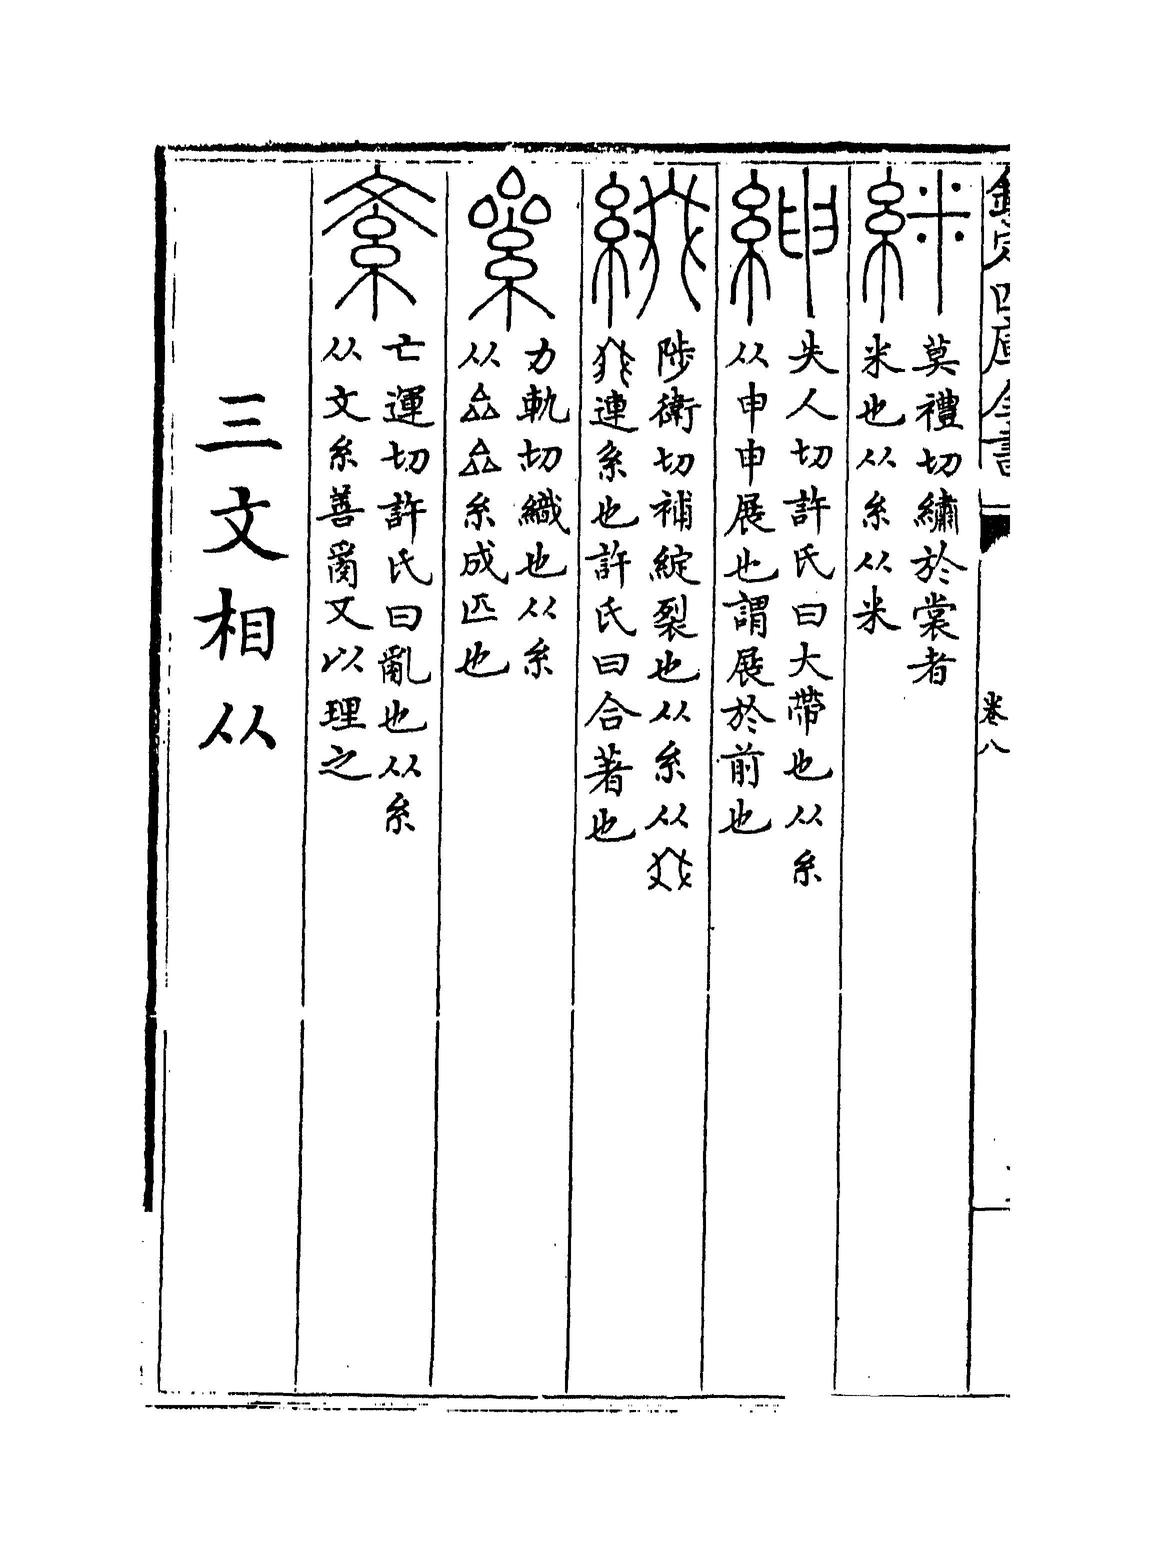 欽定四庫全書
卷八
䋛
莫禮切繡於裳者
米也从糸从米
紳
失人切許氏曰大帶也从糸
从申申展也謂展於前也
綴
陟衛切補綻裂也从糸从叕
叕連糸也許氏曰合著也
絫
力軌切織也从糸
从厽厽糸成匹也
紊
亡運切許氏曰亂也从糸
从文糸善𤔔又以理之
三文相从